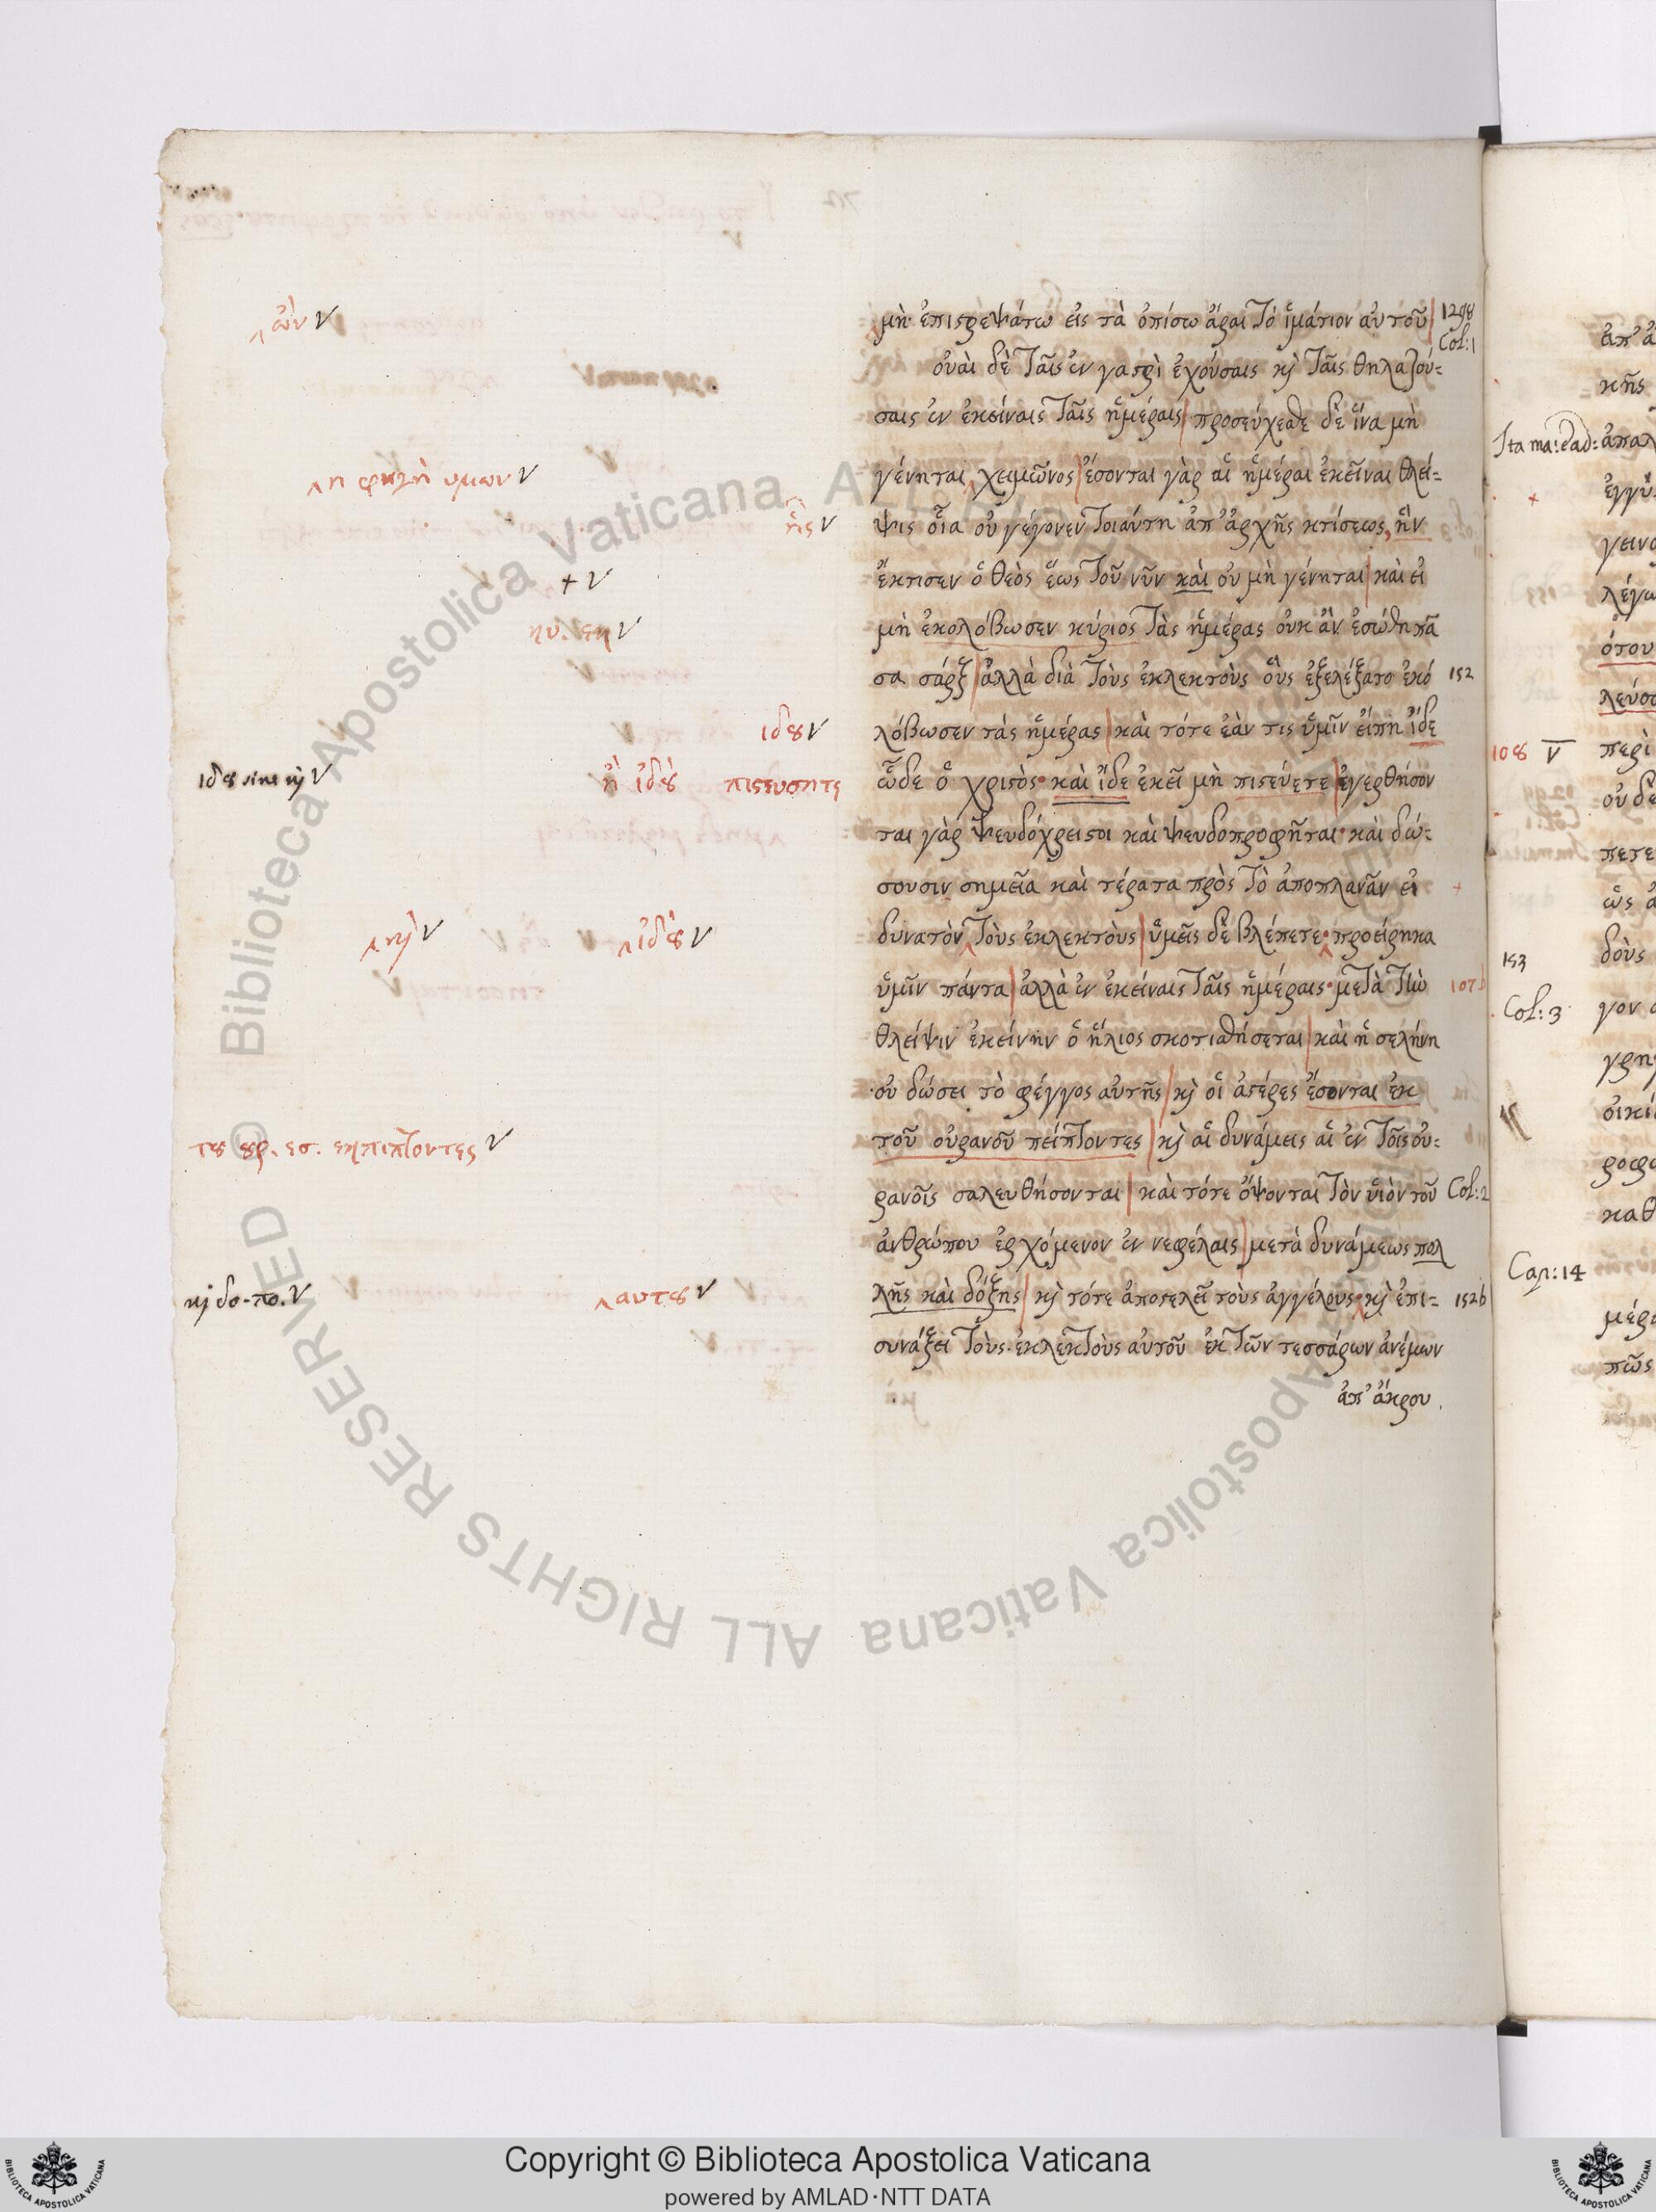 μὴ ἐπιστρεψάτω εἰς τὰ ὀπίσω ἆραι τὸ ἱμάτιον αὐτοῦ 1298
Col: 1
οὐαὶ δὲ ταῖς ἐν γαστρὶ ἐχούσαις καὶ ταῖς θηλαζού=
σαις ἐν ἐκείναις ταῖς ἡμέραις προσεύχεσθε δὲ ἵνα μὴ
γένηται χειμῶνος ἔσονται γὰρ αἱ ἡμέραι ἐκεῖναι θλεί=
ψις οἵα οὐ γέγονεν τοιαύτη ἀπ' ἀρχῆς κτίσεως, ἣν
ἔκτισεν ὁ θεὸς ἕως τοῦ νῦν καὶ οὐ μὴ γένηται καὶ εἰ
μὴ ἐκολόβωσεν κύριος τὰς ἡμέρας οὐκ ἂν ἐσώθη πᾶ
σα σάρξ ἀλλὰ διὰ τοὺς ἐκλεκτοὺς οὓς ἐξελέξατο ἐκό 152
λόβωσεν τάς ἡμέρας καὶ τότε ἐάν τις ὑμῖν εἴπη ἴδε
ὧδε ὁ χριστὸς καὶ ἴδε ἐκεῖ μὴ πιστεύετε ἐγερθήσον
ται γὰρ ψευδόχρειστοι καὶ ψευδοπροφῆται καὶ δώ=
σουσιν σημεῖα καὶ τέρατα πρὸς τὸ ἀποπλανᾶν εἰ
δυνατὸν τοὺς ἐκλεκτοὺς ὑμεῖς δὲ βλέπετε προείρηκα
ὑμῖν πάντα ἀλλὰ ἐν ἐκείναις ταῖς ἡμέραις μετὰ τὴν
θλεῖψιν ἐκείνην ὁ ἥλιος σκοτισθήσεται καὶ ἡ σελήνη
οὐ δώσει τὸ φέγγος αὐτῆς καὶ οἱ ἀστέρες ἔσονται ἐκ
τοῦ οὐρανοῦ πείπτοντες καὶ αἱ δυνάμεις αἱ ἐν τοῖς οὐ=
ρανοῖς σαλευθήσονται καὶ τότε ὄψονται τὸν υἱὸν τοῦ Col: 2
ἀνθρώπου ἐρχόμενον ἐν νεφέλαις μετὰ δυνάμεως πολ
λῆς καὶ δόξης καὶ τότε ἀποστελεῖ τοὺς ἀγγέλους καὶ ἐπι= 152b
συνάξει τοὺς ἐκλεκτοὺς αὐτοῦ ἐκ τῶν τεσσάρων ἀνέμων
ἀπ' ἄκρου
ὢν V
η φυγὴ υμων V
ἧς V
+ V
κυ. εκ V
ιδου V
ιδου sine καὶ V
ἢ ἰδοὺ πιστευσητε
καὶ V
ἰδοὺ V
του ουρ. εσ. εκπιπτοντες V
καὶ δο. πο. V
αυτου V
Col: 3
Cap: 14
153
Copyright © Biblioteca Apostolica Vaticana
powered by AMLAD·NTT DATA
© Biblioteca Apostolica Vaticana ALL RIGHTS RESERVED